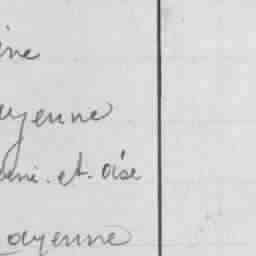 ine
ayenne
eine. et. oise
ayenne